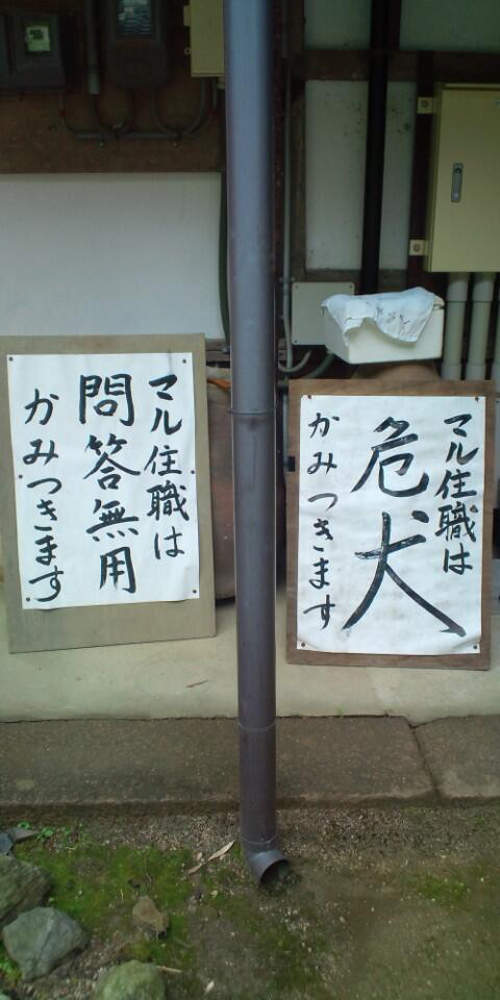 マル住職は
危犬
かみつきます
マル住職は
問答無用
かみつきます